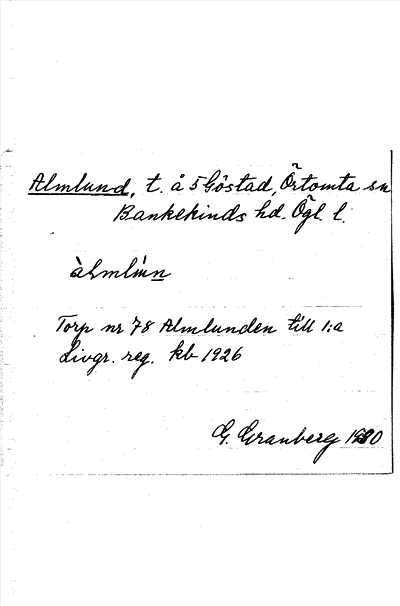 Almlund, t. å 5 Göstad, Örtomta sn
Bankekinds hd. Ögl. l.
Torp nr 78 Almlunden till 1:a
Livgr. reg. kb 1926
G. Granberg